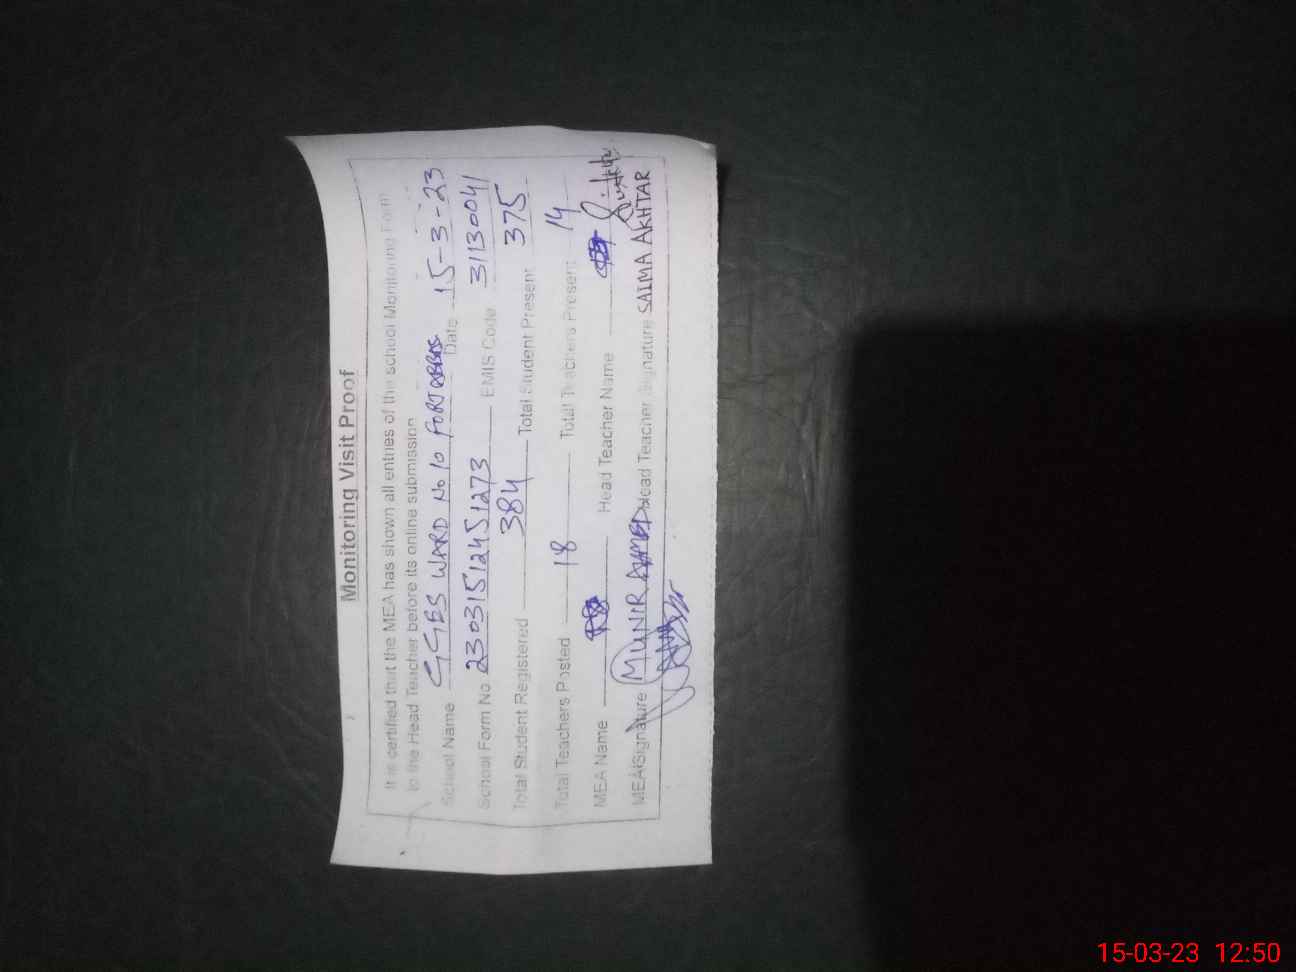 Monitoring Visit Proof
It is certified that the MEA has shown all entries of the school Monitoring Form
to the Head Teacher before its online submission
School Name GGES WARD No 10 FORTABBAS Date 15-3-23
School Form No 23031512451273 EMIS Code 31130041
Total Student Registered 384 Total Student Present 375
Total Teachers Posted 18 Total Teachers Present 14
MEA Name Head Teacher Name
MEA Signature MUNIR AHMED Head Teacher Signature SAIMA AKHTAR
15-03-23 12:50